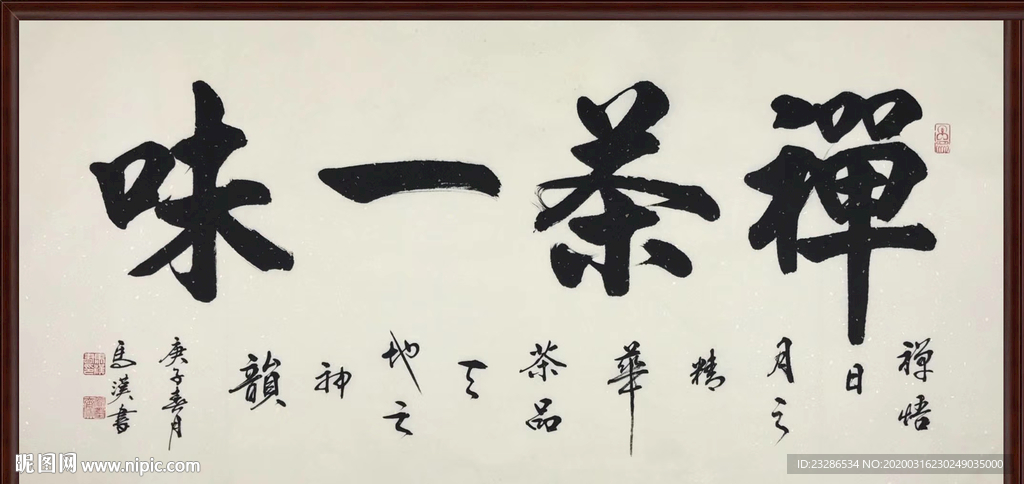 禪茶一味
禅悟
日
月之
精
華
茶品
天
地之
神
韻
庚子春月
馬漢書
昵图网 www.nipic.com
ID:23286534 NO:20200316230249035000